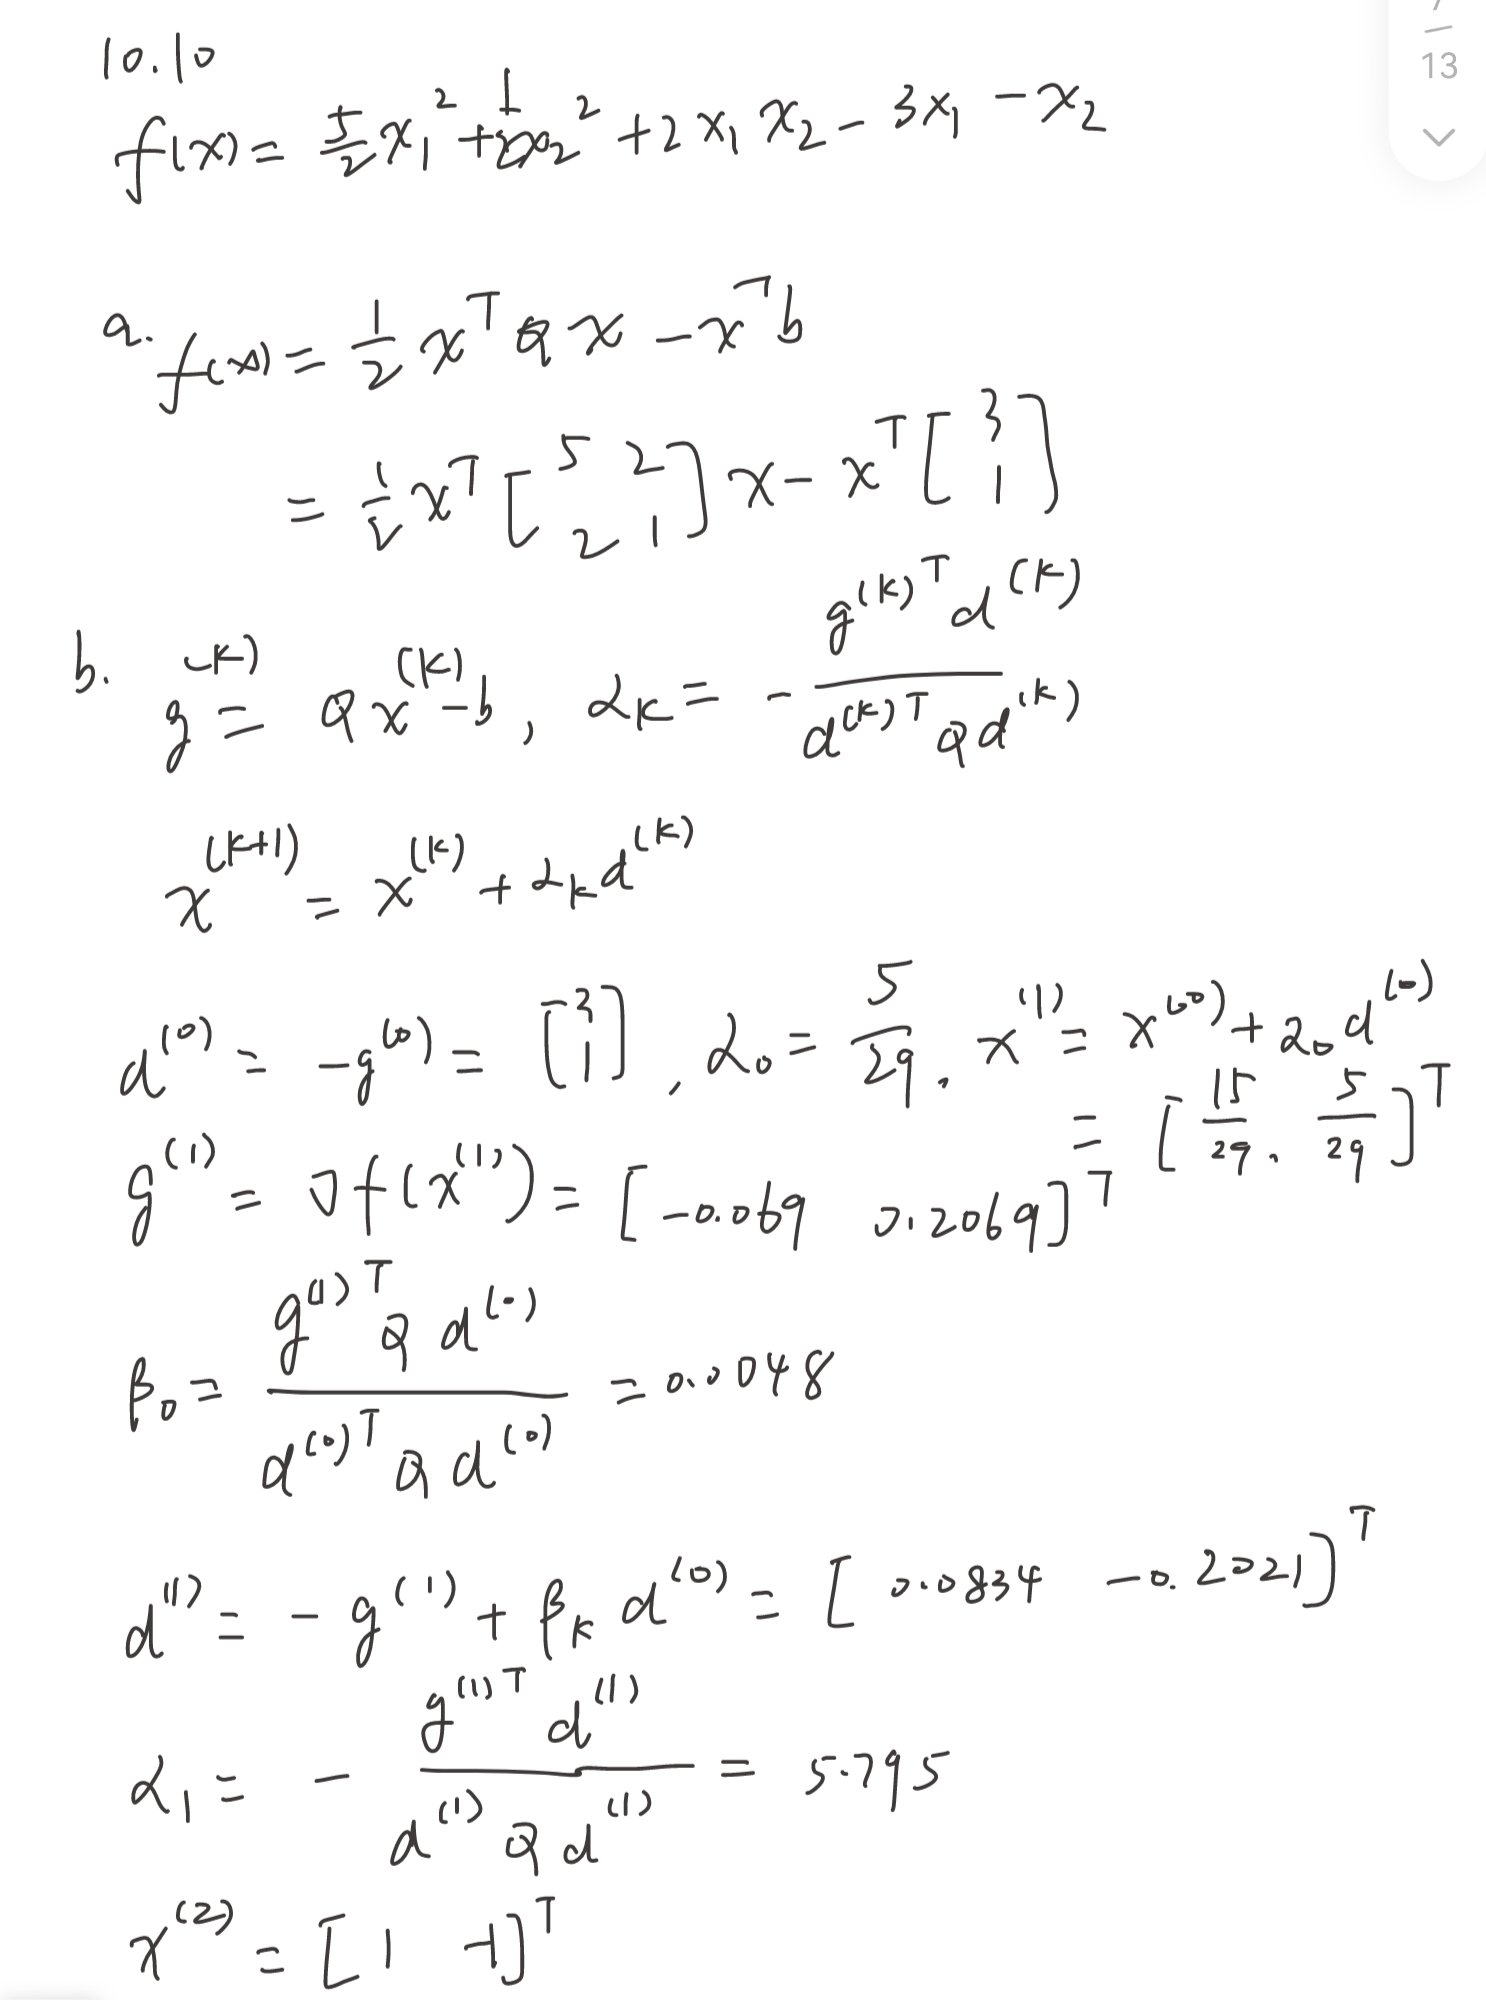 7
13
10.10
f(x) = 5/2 x₁² + 1/2 x₂² + 2x₁x₂ - 3x₁ - x₂
a. f(x) = 1/2 xᵀQx - xᵀb
= 1/2 xᵀ [5 2; 2 1] x - xᵀ [3; 1]
b. g^(k) = Qx^(k) - b, α_k = - g^(k)ᵀ d^(k) / d^(k)ᵀ Q d^(k)
x^(k+1) = x^(k) + α_k d^(k)
d^(0) = -g^(0) = [3; 1], α₀ = 5/29, x^(1) = x^(0) + α₀ d^(0)
= [15/29, 5/29]ᵀ
g^(1) = ∇f(x^(1)) = [-0.069 0.2069]ᵀ
β₀ = g^(1)ᵀ Q d^(0) / d^(0)ᵀ Q d^(0) = 0.0048
d^(1) = -g^(1) + β_k d^(0) = [0.0834 -0.2021]ᵀ
α₁ = - g^(1)ᵀ d^(1) / d^(1) Q d^(1) = 5.795
x^(2) = [1 -1]ᵀ